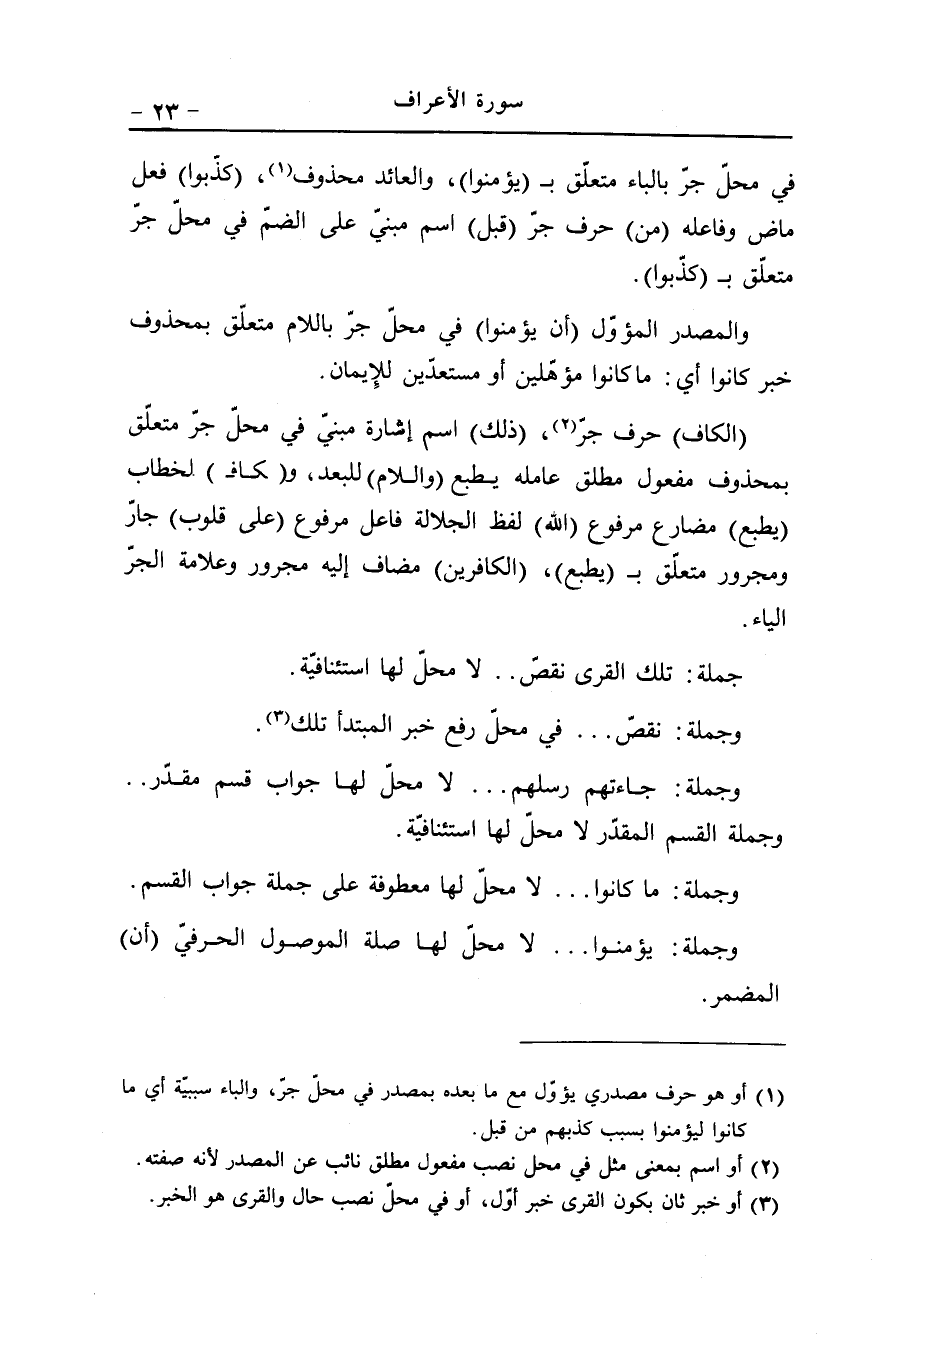 سورة الأعراف
- ٢٣ -
في محلّ جرّ بالباء متعلّق بـ (يؤمنوا)، والعائد محذوف(١)، (كذّبوا) فعل
ماض وفاعله (من) حرف جرّ (قبل) اسم مبنيّ على الضمّ في محلّ جرّ
متعلّق بـ (كذّبوا).
والمصدر المؤوّل (أن يؤمنوا) في محلّ جرّ باللام متعلّق بمحذوف
خبر كانوا أي: ما كانوا مؤهّلين أو مستعدّين للإيمان.
(الكاف) حرف جرّ(٢)، (ذلك) اسم إشارة مبنيّ في محلّ جرّ متعلّق
بمحذوف مفعول مطلق عامله يطبع (واللام) للبعد، و( كاف ) لخطاب
(يطبع) مضارع مرفوع (الله) لفظ الجلالة فاعل مرفوع (على قلوب) جارّ
ومجرور متعلّق بـ (يطبع)، (الكافرين) مضاف إليه مجرور وعلامة الجرّ
الياء.
جملة: تلك القرى نقصّ.. لا محلّ لها استئنافيّة.
وجملة: نقصّ... في محلّ رفع خبر المبتدأ تلك(٣).
وجملة: جاءتهم رسلهم... لا محلّ لها جواب قسم مقدّر..
وجملة القسم المقدّر لا محلّ لها استئنافيّة.
وجملة: ما كانوا... لا محلّ لها معطوفة على جملة جواب القسم.
وجملة: يؤمنوا... لا محلّ لها صلة الموصول الحرفيّ (أن)
المضمر.
(١) أو هو حرف مصدري يؤوّل مع ما بعده بمصدر في محلّ جرّ، والباء سببيّة أي ما
كانوا ليؤمنوا بسبب كذبهم من قبل.
(٢) أو اسم بمعنى مثل في محل نصب مفعول مطلق نائب عن المصدر لأنه صفته.
(٣) أو خبر ثان بكون القرى خبر أوّل، أو في محلّ نصب حال والقرى هو الخبر.